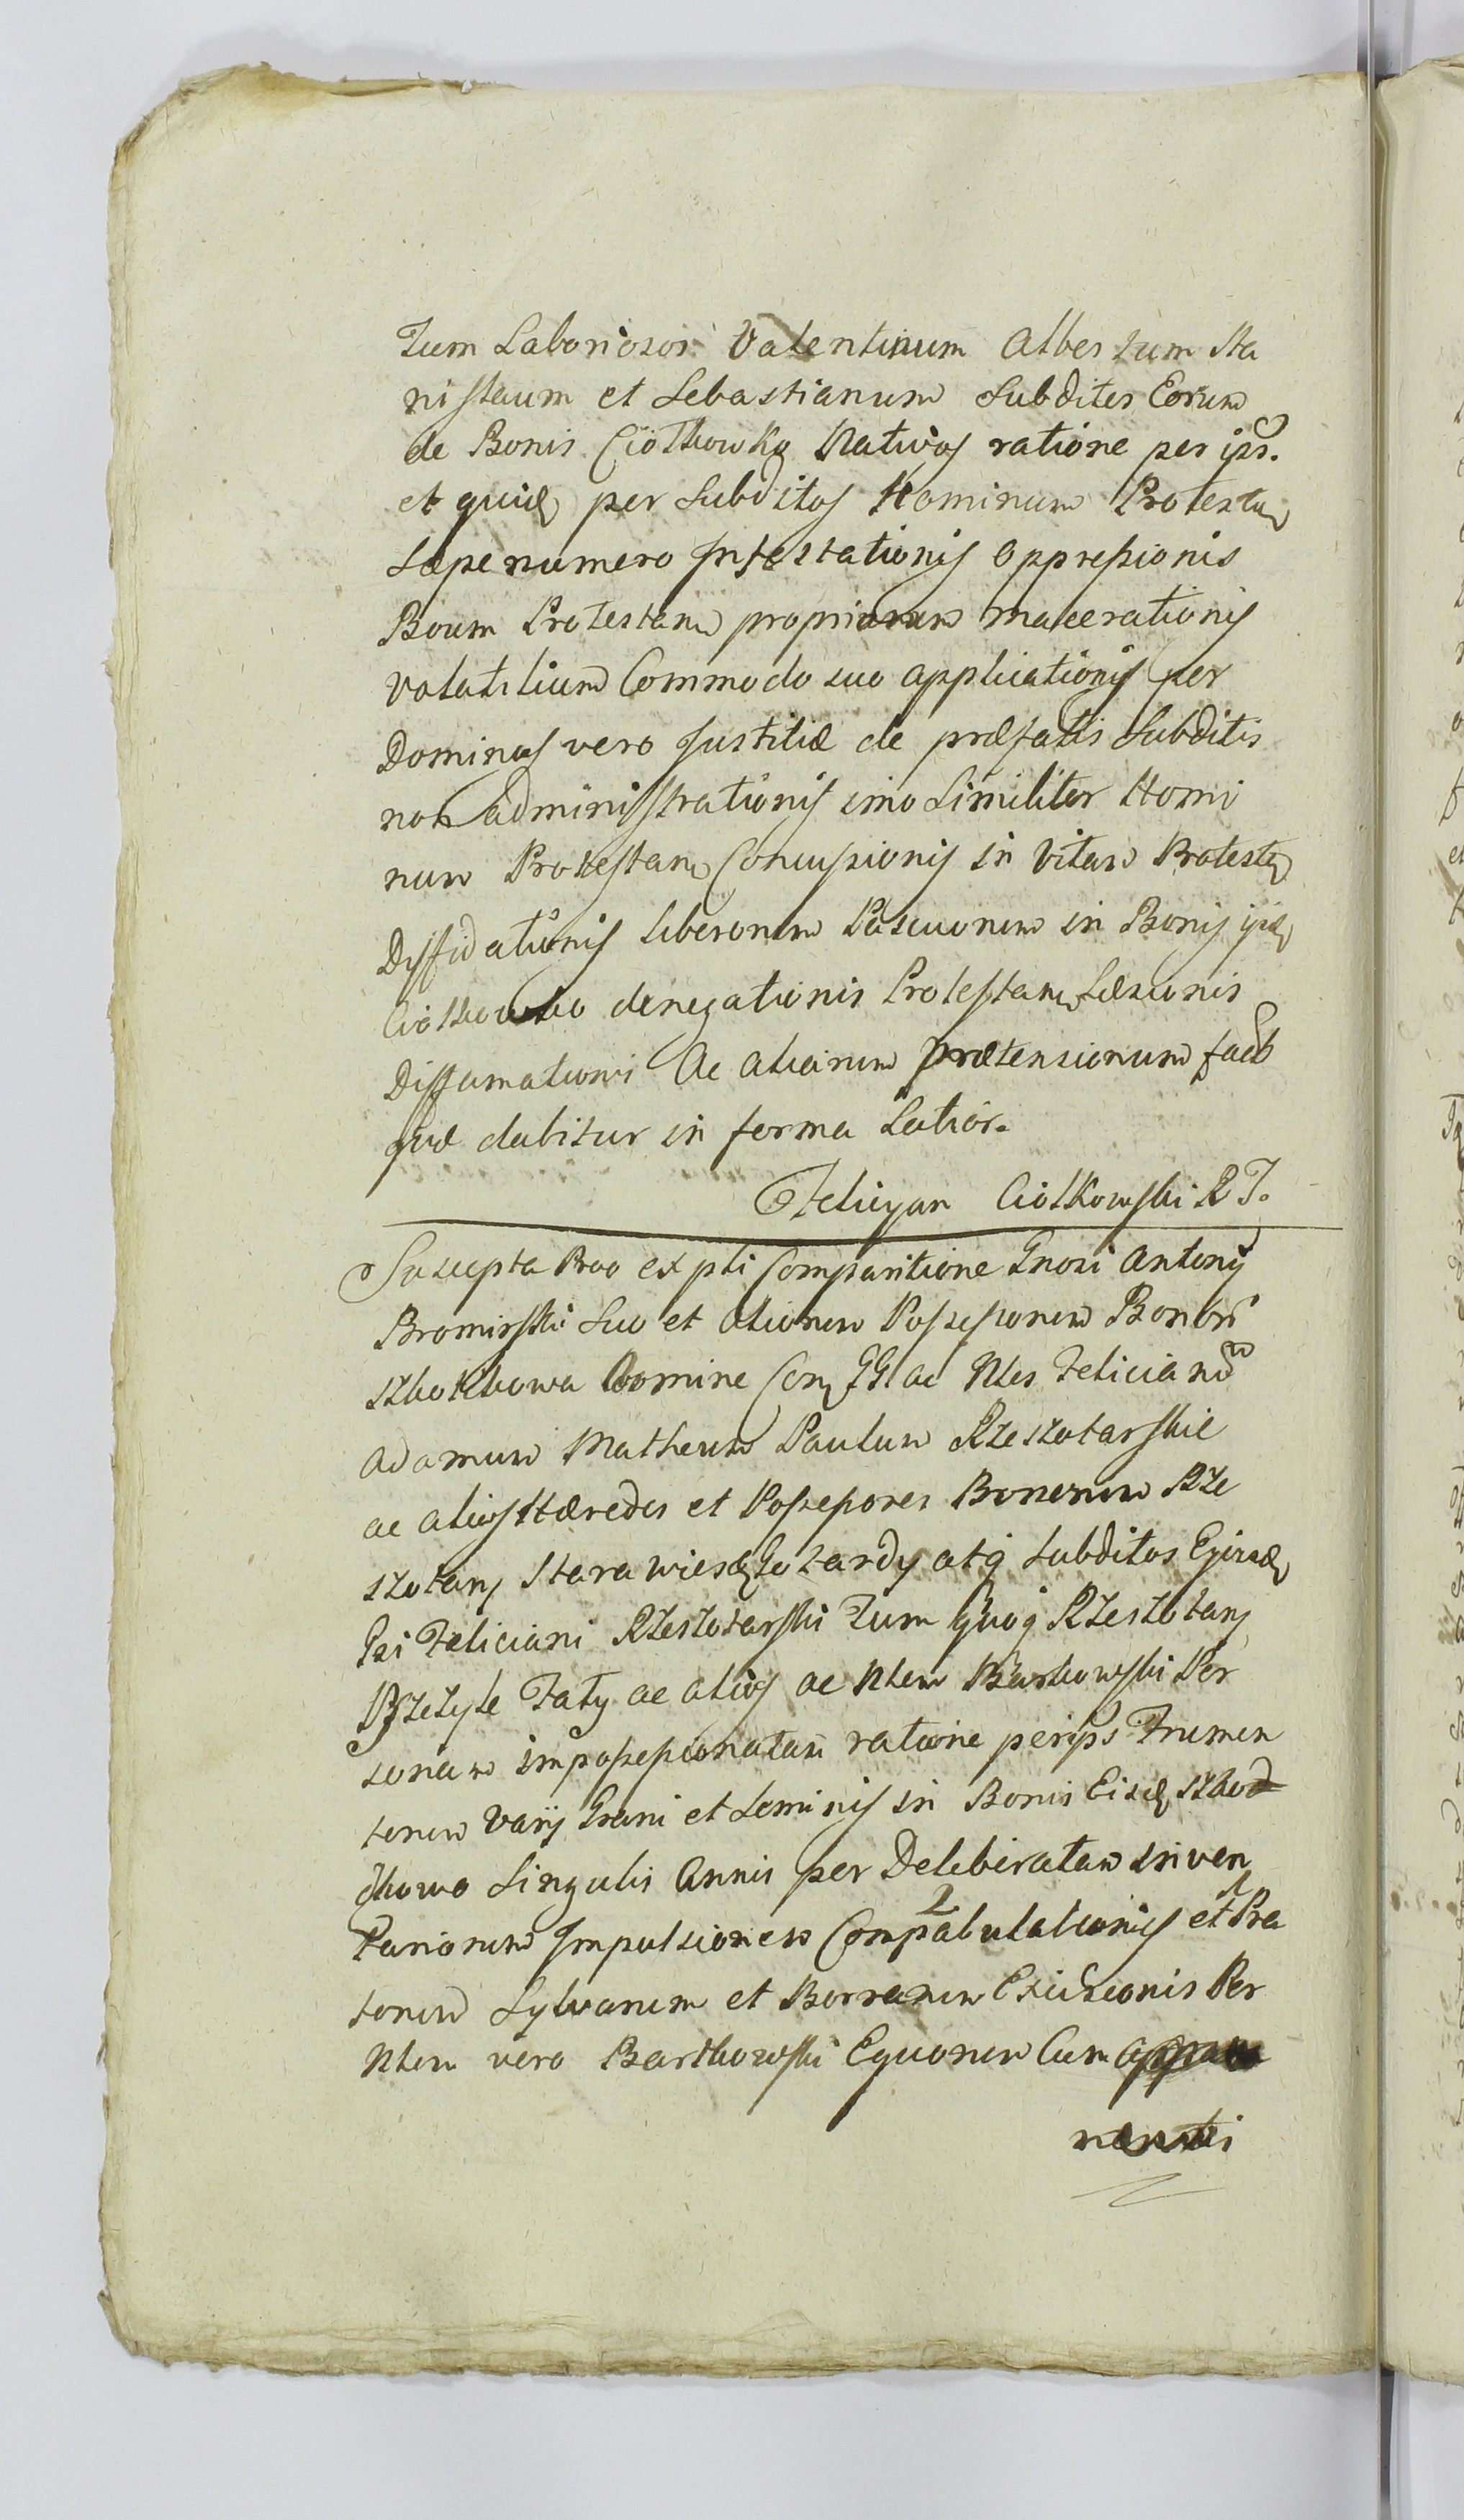 Tum Laboriosos Valentinum Albertum Sta
nislaum et Sebastianum Subditos Eorum
de Bonis Ciołkowko Nativos ratione per ips.
et quidē per Subditos Hominum Protestan
Sæpe numero Infestationis Oppressionis
Boum Protestan propriorum macerationis
volatilium Commodo suo applicationis per
Dominos vero Justitiæ de præfatis Subditis
non administrationis imo Similiter Homi
num Protestan Concussionis in Vitam Protestā
Diffidationis liberorum Pascuorum in Bonis ijsd
Ciołkowko denegationis Protestan Læsionis
Diffamationi Ac aliarum prætensionum fact
quæ dabitur in forma Latior.
Felicyan Ciołkowski R J.
Suscepta Prao ex pti Comparitione Gnosi Antonij
Bromirski Suo et aliorum Possessorum Bonorū
Nomine Con GG ac Nles Felicianū
Adamum Matheum Paulum Rzeszotarskie
ac alios Hæredes et Possessores Bonorum Rze
szotary Stara wies Gotardy atq Subditos Ejusd
Gsi Feliciani Rzeszotarski Tum Quoq Rzeszotary
Pszczyle Faty ac alios ac Nlem Bartkowski Per
sonam impossessionatam ratione per ips Frumen
torum Varij Grani et Seminis in Bonis Eisd
Singulis Annis per Deliberatam inven
tariorum Impulsionem Compabulationis et Pra
torum Sylvarum et Borrarum Excisionis Per
Nlem vero Bartkowski Equorum Cum